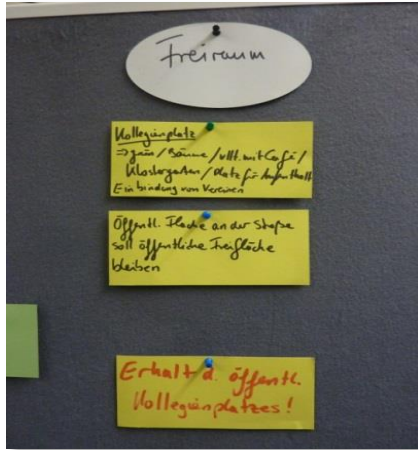 Freiraum
Kollegienplatz
=> grün / Bäume / vllt. mit Café /
Klostergarten / Platz für Aufenthalt
Einbindung von Vereinen
Öffentl. Fläche an der Straße
soll öffentliche Freifläche
bleiben
Erhalt d. öffentl.
Kollegienplatzes!